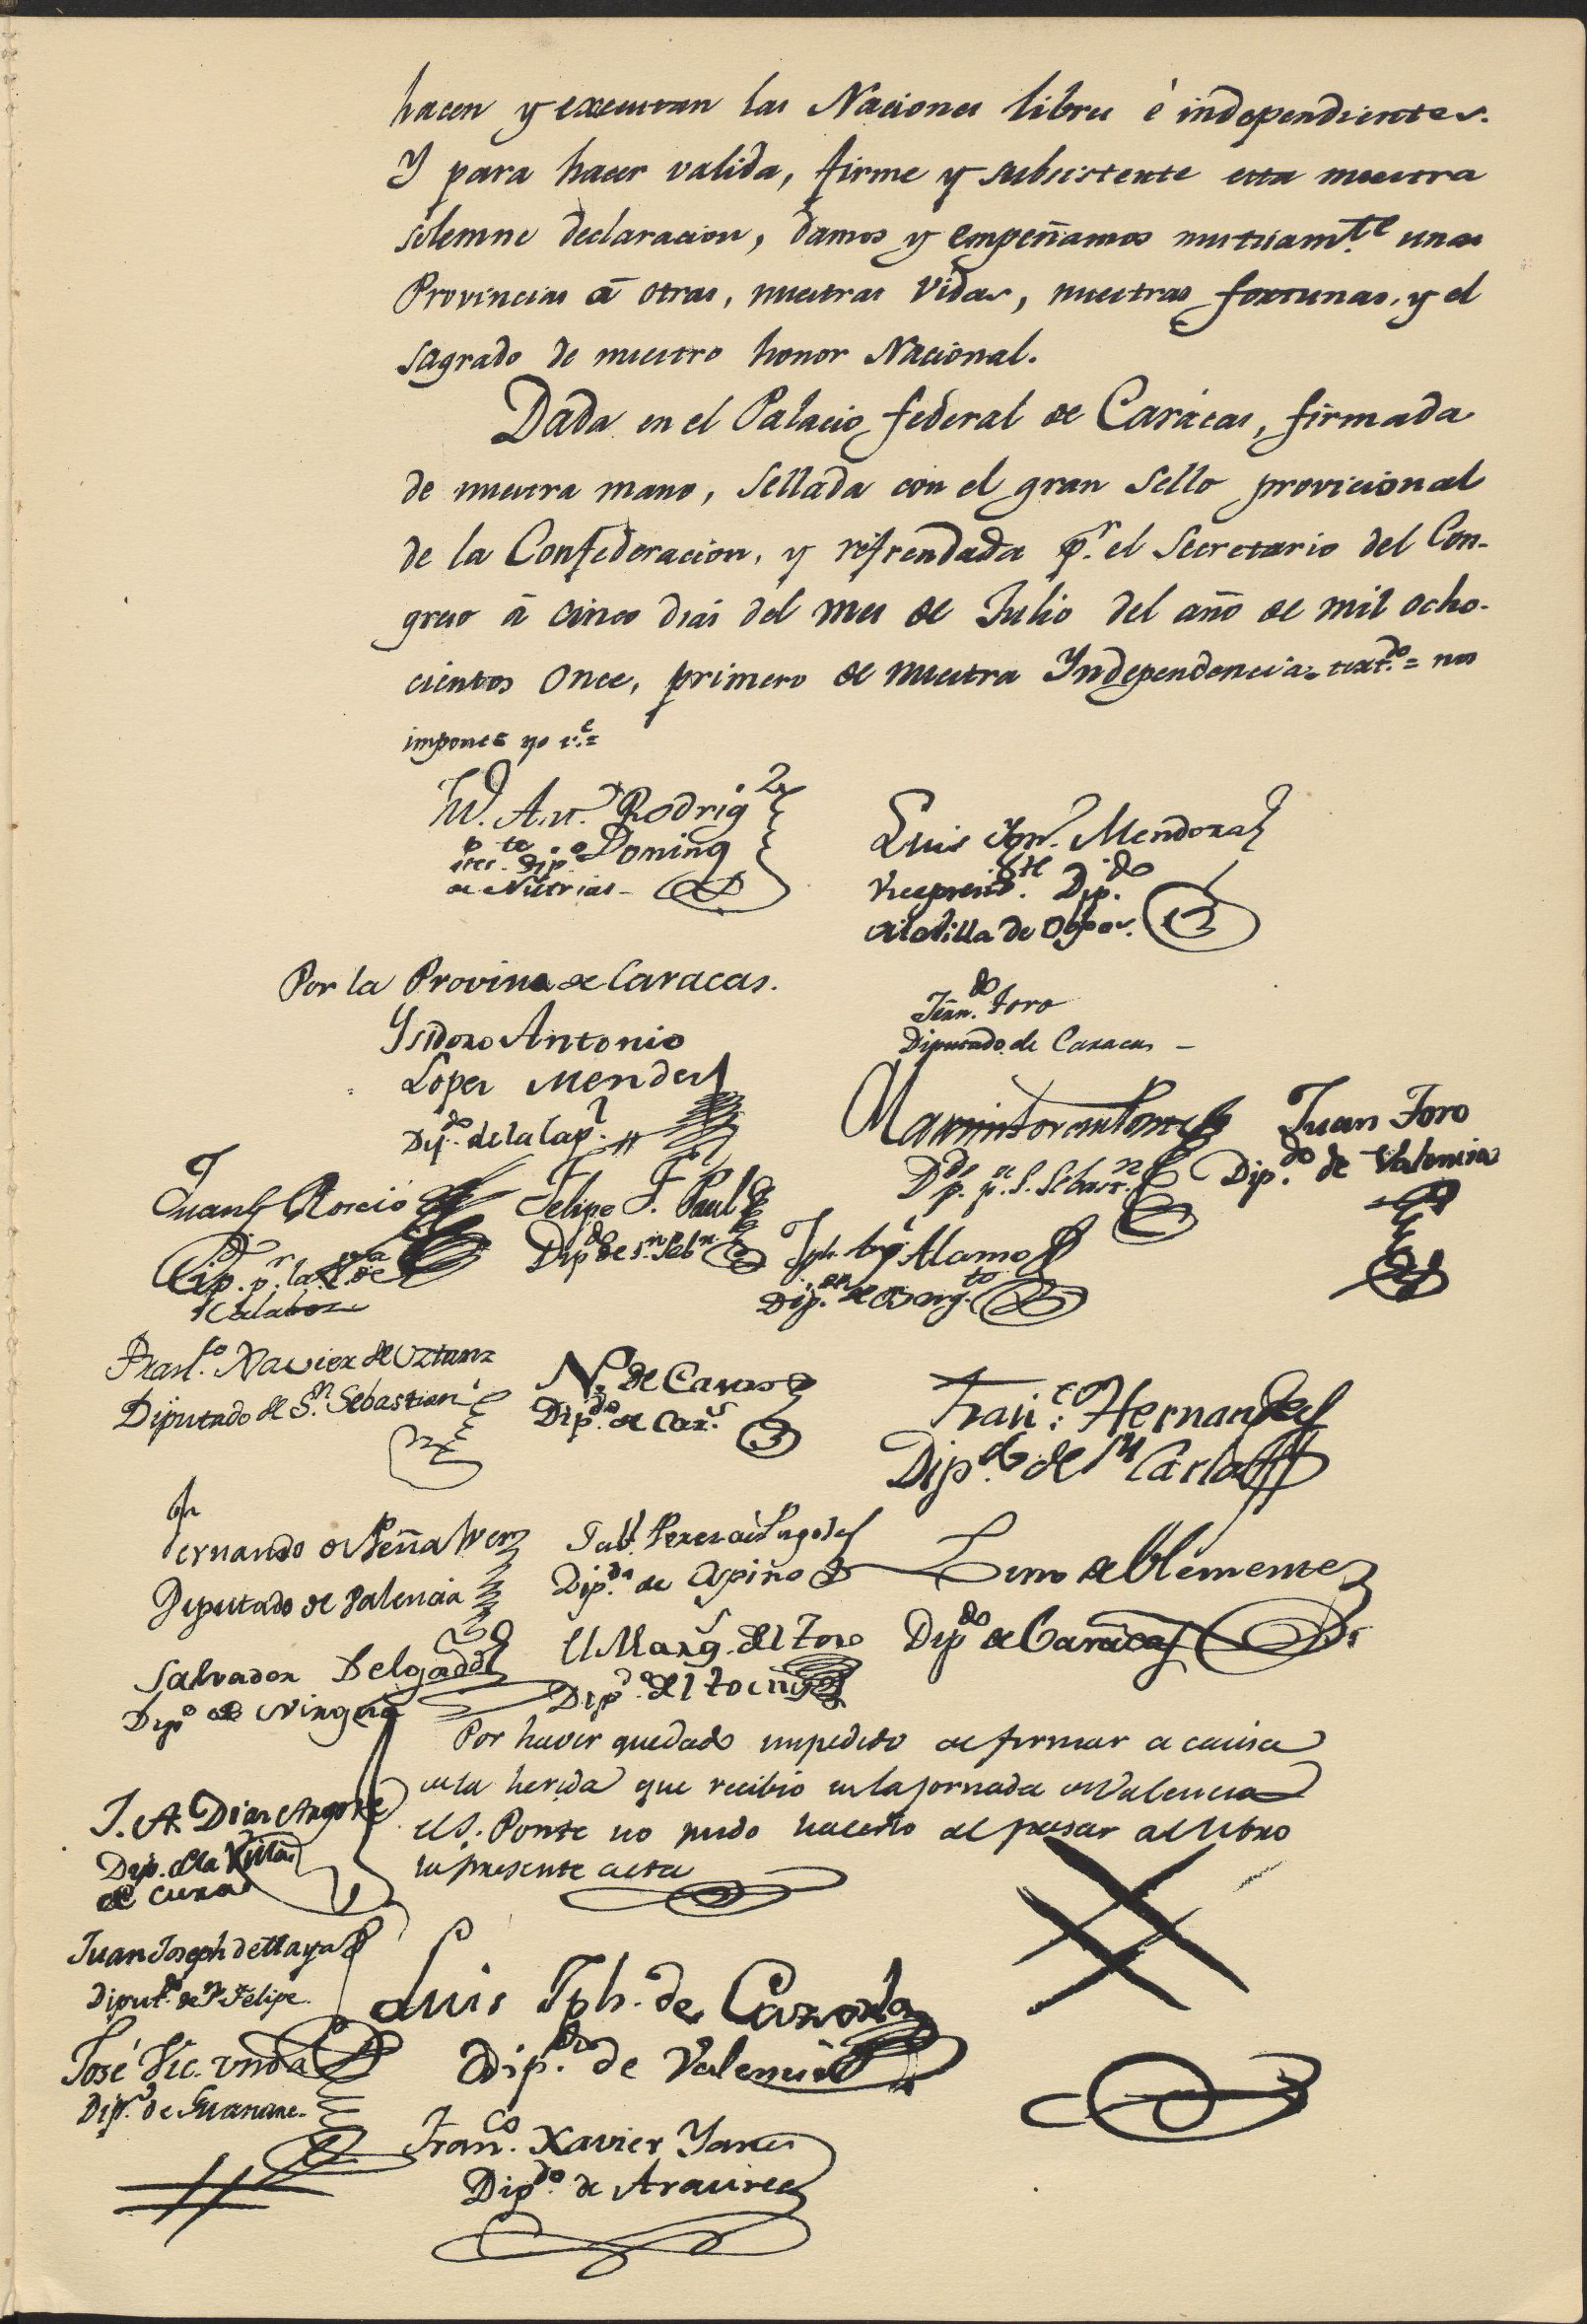 hacen y executan las Naciones libres é independientes.
Y para hacer valida, firme y subsistente esta nuestra
solemne declaracion, damos y empeñamos mutuam.te unas
Provincias á otras, nuestras vidas, nuestras fortunas, y el
sagrado de nuestro honor Nacional.
Dada en el Palacio federal de Carácas, firmada
de nuestra mano, sellada con el gran sello provicional
de la Confederacion, y refrendada p.r el Secretario del Con-
greso á cinco dias del mes de Julio del año de mil ocho-
cientos once, primero de nuestra Independencia= text.do= nos
impone=
J.n A.n Rodrig.z
Doming.o
Dip.
de Nutrias
Luis Ign.o Mendoza
Vicepresid.te Dip.do
de la Villa de Obpos.
Por la Provin.a de Caracas.
Ysidoro Antonio
Lopez Mendez
Dip.do de la Cap.l
Fern.do Toro
Diputado de Caracas
Martin Tovar Ponte
D.do p. S. Sebast.n
Juan Toro
Dip.do de Valencia
Juan G. Roscio
Dip. p.r la V.a de
Calabozo
Felipe F. Paul
Dip.do de S.n Seb.n
Jph. Ang.l Alamo
Dip.do de Barq.to
Fran.co Xavier de Uztariz
Diputado de S.n Sebastian
N. de Castro
Dip.do de Car.s
Fran.co Hernandez
Dip.do de S.n Carlos
Fernando de Peñalver
Diputado de Valencia
Gab.l Perez de Pagola
Dip.do de Ospino
Lino de Clemente
Dip.do de Carácas
Salvador Delgado
Dip.o de Nirgua
El Marq.s del Toro
Dip.do del Tocuyo
Por haver quedado impedido de firmar a causa
de la herida que recibió en la jornada de Valencia
el S. Ponte no pudo hacerlo al pasar al libro
la presente acta
J. A. Diaz Argote
Dip. de la Villa
de Cura
Juan Joseph de Maya
Diput.do de S. Felipe.
Luis Jph. de Cazorla
Dip.do de Valencia
José Vic. Unda
Dip.do de Guanare.
Fran.co Xavier Yanes
Dip.do de Araure